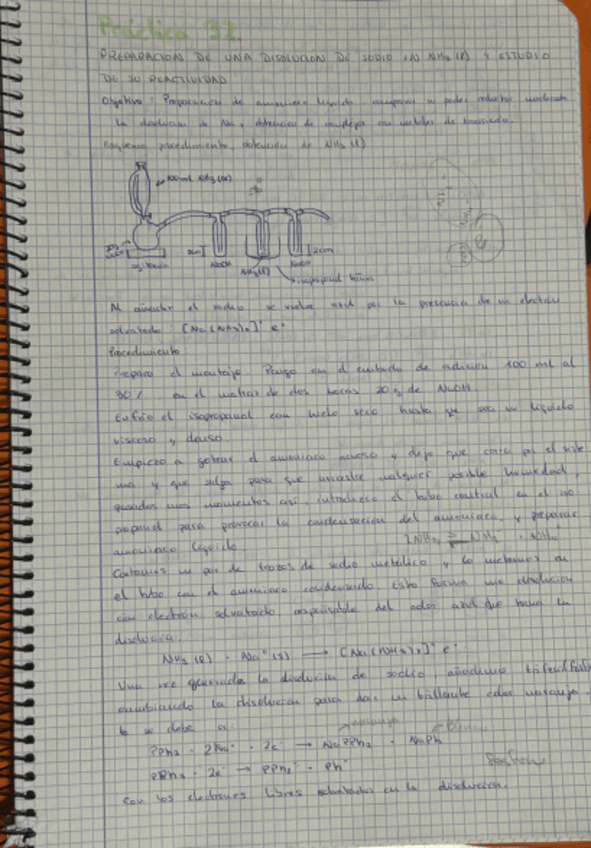 Práctica 32.
PREPARACION DE UNA DISOLUCION DE SODIO EN NH3 (l) Y ESTUDIO
DE SU REACTIVIDAD
Objetivo: Preparacion de amoniaco líquido, comparar su poder reductor mediante
la disolucion de Na, obtencion de complejos con metales de transición.
Esquema procedimiento, obtencion de NH3 (l)
100 ml NH3 (ac)
NaOH
NH3 (l)
NaOH
2cm
agitacion
isopropanol
Al añadir el sodio se vuelve azul por la presencia de un electron
solvatado: [Na(NH3)x]+ e-
Procedimiento:
Preparo el montaje. Pongo en el embudo de adicion 100 ml al
30% en el matraz de dos bocas 20 g de NaOH.
Enfrio el isopropanol con hielo seco hasta que sea un liquido
viscoso y denso.
Empiezo a gotear el amoniaco acuoso y dejo que corra por el siste
ma y que salga para que arrastre cualquier posible humedad,
pasados unos momentos así, introduzco el tubo central en el iso
propanol para provocar la condensacion del amoniaco, y preparar
amoniaco liquido.
2NH3 ⇌ NH2- + NH4+
Cortamos un par de trozos de sodio metalico y lo metemos en
el tubo con el amoniaco condensado. Esto forma una disolucion
con electron solvatado responsible del color azul que toma la
disolucion.
NH3 (l) + Na (s) → [Na(NH3)x]+ e-
Una vez generada la disolucion de sodio, añadimos trifenilfosfina
cambiando la disolucion para dar un brillante color naranja.
se debe a:
naranja
PPh3 + 2Na+ + 2e- → NaPPh2 + NaPh
PPh3 + 2e- → PPh2- + Ph-
Con los electrones libres solvatados en la disolucion.